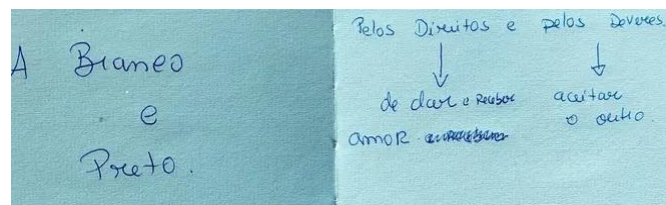 A Branco
e
Preto.
Pelos Direitos e pelos Deveres.
de dar e Receber aceitar
amor o outro.